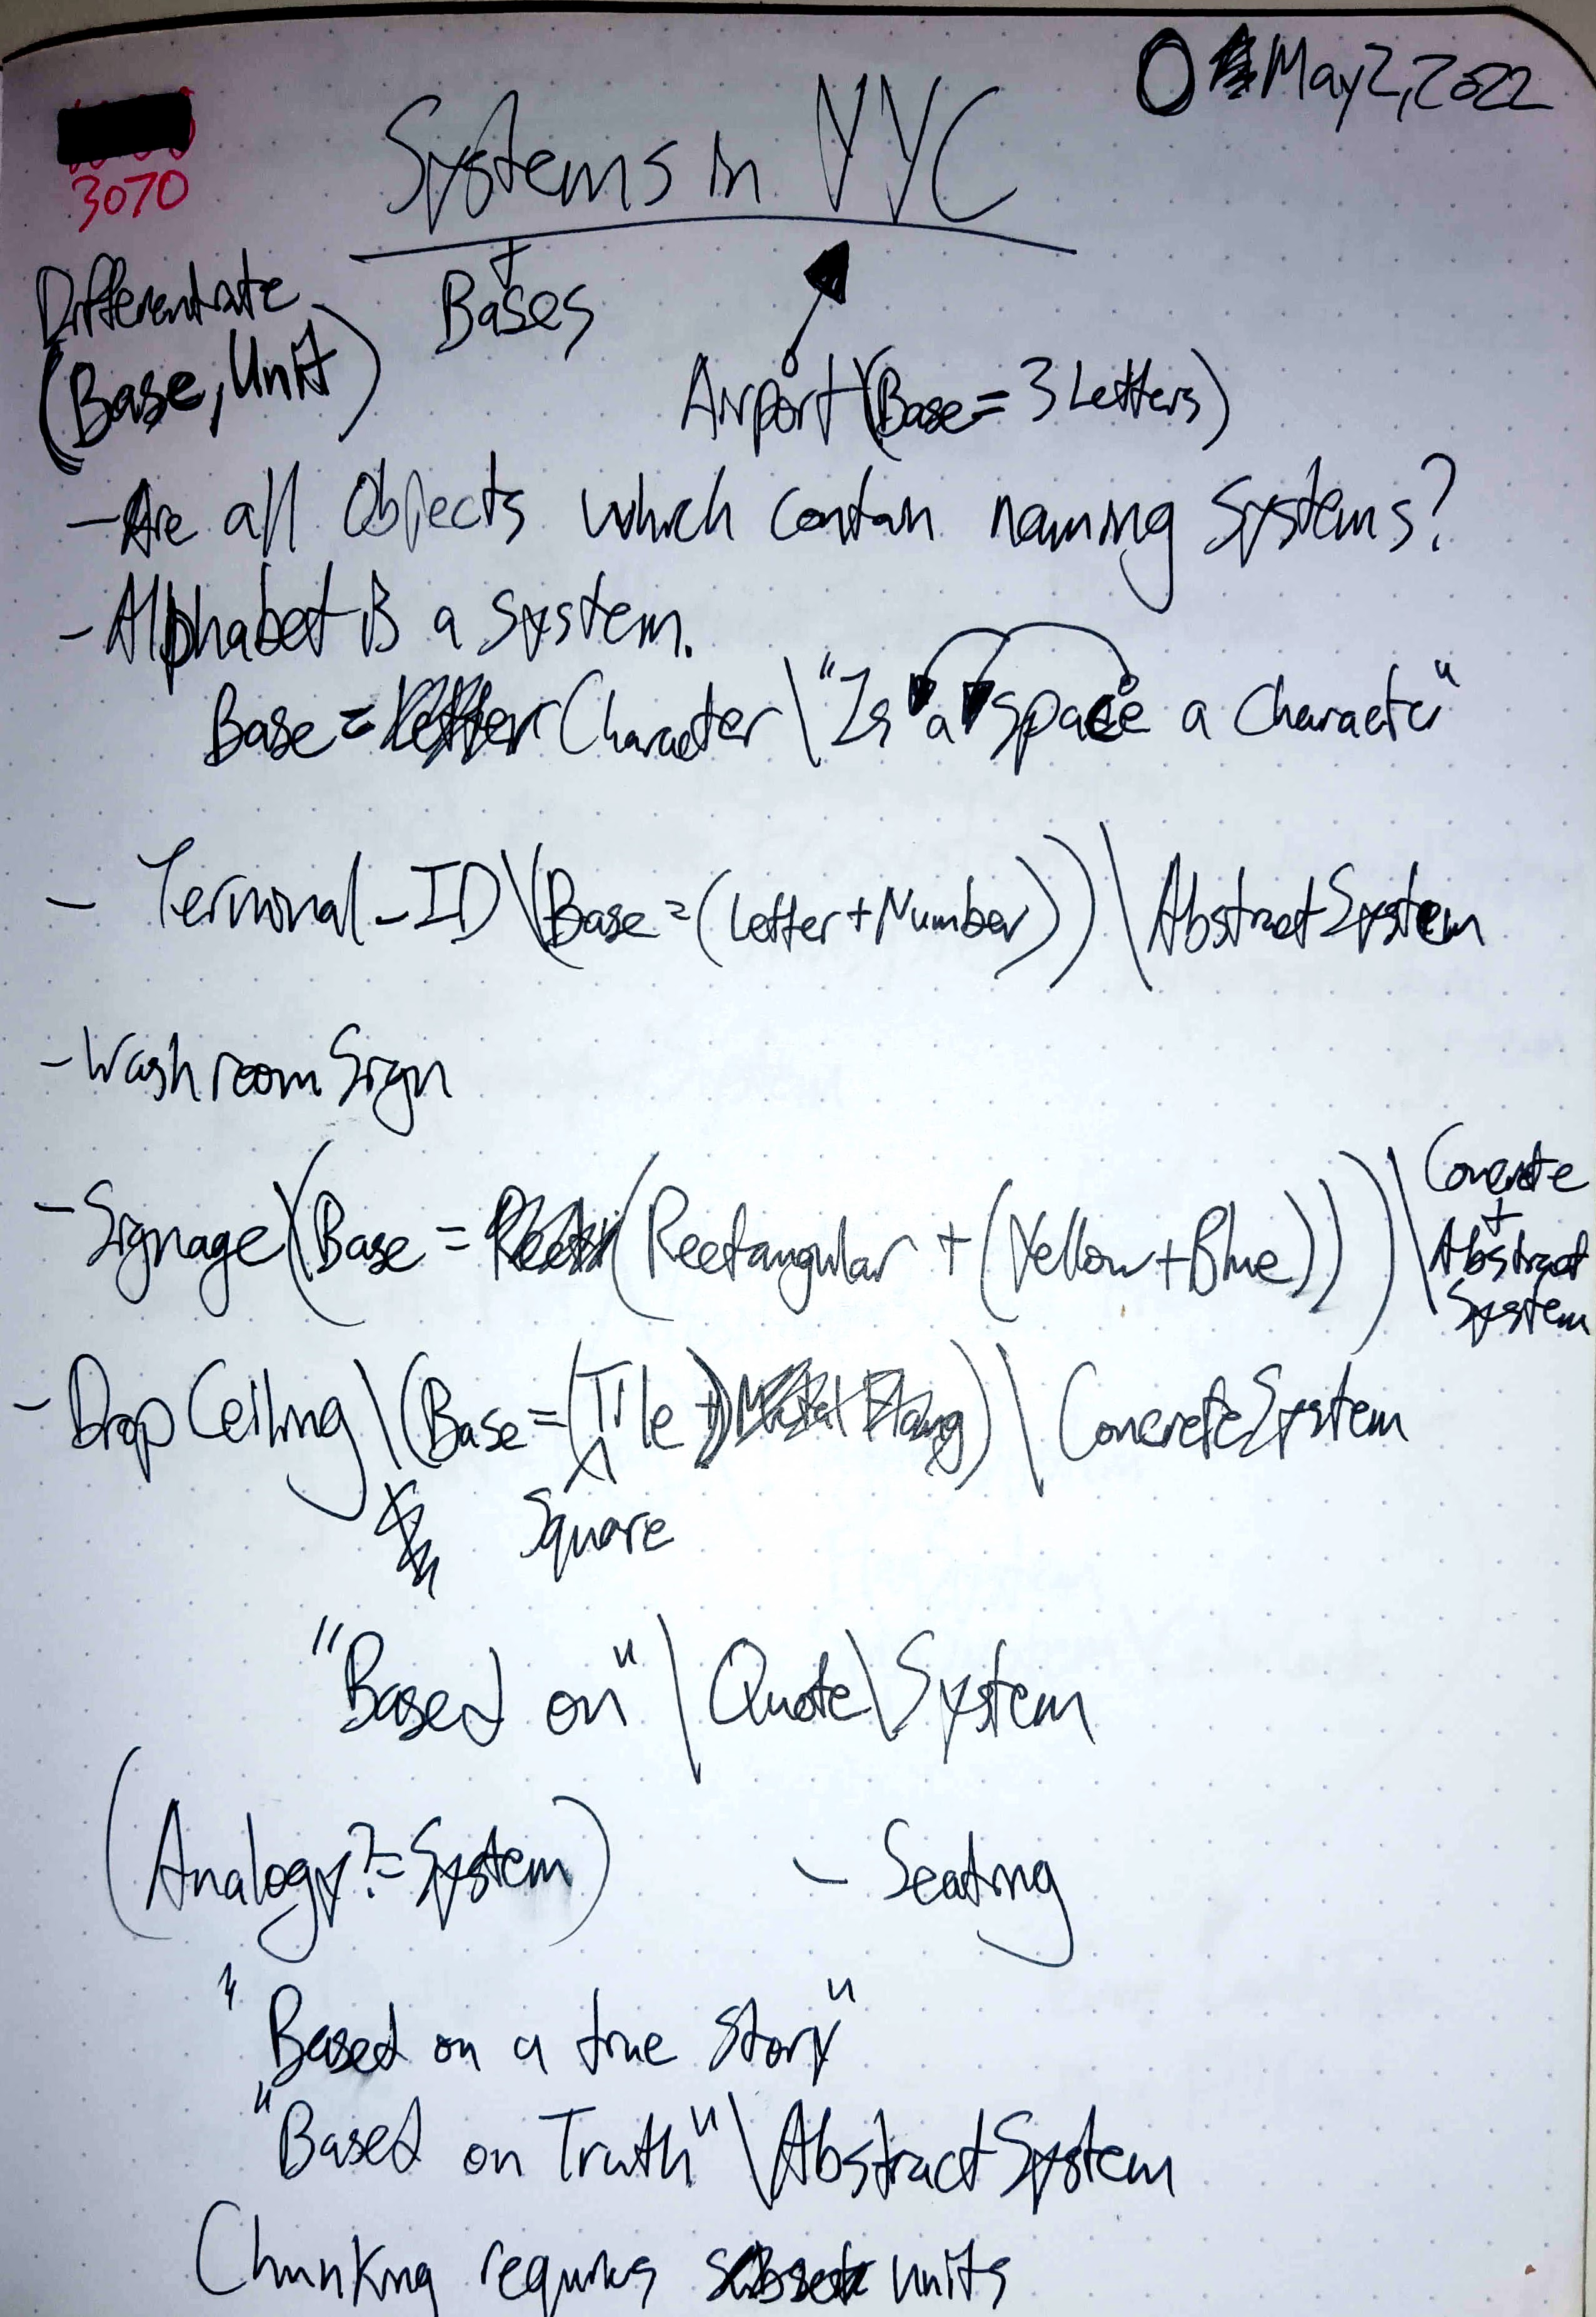 May 2, 2022
3070
Systems in YYC
Bases
Differentiate
(Base, Unit)
Airport\(Base = 3 Letters)
- Are all Objects which contain naming systems?
- Alphabet is a system.
Base = Character \ "Is a space a character"
- Terminal-ID\(Base = (Letter + Number)) \ Abstract System
- Washroom Sign
- Signage\(Base = (Rectangular + (Yellow + Blue))) \ Concrete + Abstract System
- Drop Ceiling\(Base = (Tile)) \ Concrete System
Square
"Based on" \ Quote \ System
(Analogy ?= System)
- Seating
"Based on a true story"
"Based on Truth" \ Abstract System
Chunking requires units